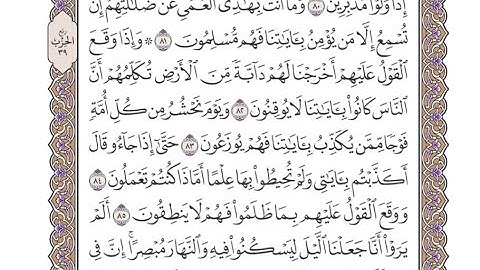 إِذَا وَلَّوْا۟ مُدْبِرِينَ ٨٠ وَمَآ أَنتَ بِهَـٰدِى ٱلْعُمْىِ عَن ضَلَـٰلَتِهِمْ إِن
تُسْمِعُ إِلَّا مَن يُؤْمِنُ بِـَٔايَـٰتِنَا فَهُم مُّسْلِمُونَ ٨١ ۞ وَإِذَا وَقَعَ
ٱلْقَوْلُ عَلَيْهِمْ أَخْرَجْنَا لَهُمْ دَآبَّةً مِّنَ ٱلْأَرْضِ تُكَلِّمُهُمْ أَنَّ
ٱلنَّاسَ كَانُوا۟ بِـَٔايَـٰتِنَا لَا يُوقِنُونَ ٨٢ وَيَوْمَ نَحْشُرُ مِن كُلِّ أُمَّةٍ
فَوْجًا مِّمَّن يُكَذِّبُ بِـَٔايَـٰتِنَا فَهُمْ يُوزَعُونَ ٨٣ حَتَّىٰٓ إِذَا جَآءُو قَالَ
أَكَذَّبْتُم بِـَٔايَـٰتِى وَلَمْ تُحِيطُوا۟ بِهَا عِلْمًا أَمَّاذَا كُنتُمْ تَعْمَلُونَ ٨٤
وَوَقَعَ ٱلْقَوْلُ عَلَيْهِم بِمَا ظَلَمُوا۟ فَهُمْ لَا يَنطِقُونَ ٨٥ أَلَمْ
يَرَوْا۟ أَنَّا جَعَلْنَا ٱلَّيْلَ لِيَسْكُنُوا۟ فِيهِ وَٱلنَّهَارَ مُبْصِرًا ۚ إِنَّ فِى
ربع
الحزب
٣٩